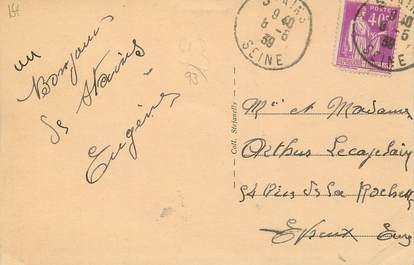 un
Bonjour
de Stains
Eugène
93
STAINS
9 40
6 - 5
39
SEINE
40c
Coll. Stefanelly
Mr et Madame
Arthur Lecapelain
54 Rue de la Rochette
Evreux Eure